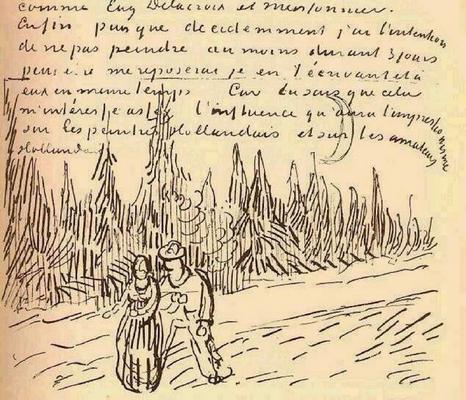 comme Eug Delacroix et meissonnier.
Enfin puisque decidemment j'ai l'intention
de ne pas peindre au moins durant 3 jours
peut être me reposerai je en t'écrivant et à
eux en même temps Car tu sais que cela
m'intéresse assez l'influence qu'aura l'impressionisme
sur les peintres Hollandais et sur les amateurs
Hollandais